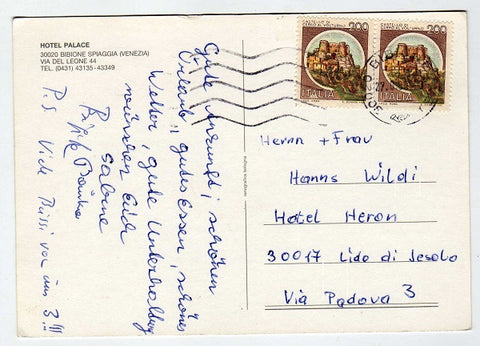 HOTEL PALACE
30020 BIBIONE SPIAGGIA (VENEZIA)
VIA DEL LEONE 44
TEL. (0431) 43135 - 43349
Gute Ankunft, schönen
Urlaub, gutes Essen, schönes
Wetter, gute Unterhaltung
wünschen Euch
Sabine
P.S. Viele Bussi von uns 3 !!!
CASTELLO DI
200
ITALIA
CASTELLO DI
200
ITALIA
Herrn + Frau
Hanns Wildi
Hotel Heron
30017 Lido di Jesolo
Via Padova 3